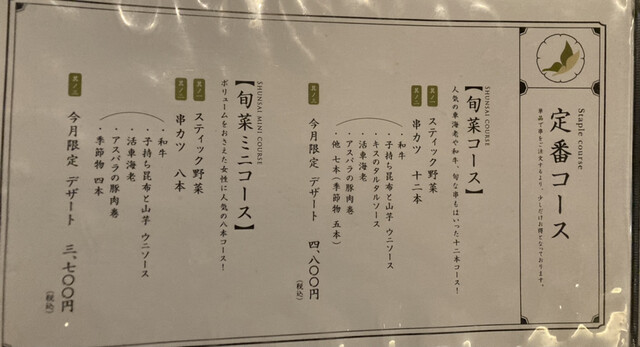 Staple course
定番コース
単品で串をご注文するより、少しだけお得となっております。
SHUNSAI COURSE
【旬菜コース】
人気の車海老や和牛、旬な串もはいった十二本コース！
其ノ一 スティック野菜
其ノ二 串カツ 十二本
・和牛
・子持ち昆布と山芋 ウニソース
・キスのタルタルソース
・活車海老
・アスパラの豚肉巻
・他 七本（季節物 五本）
其ノ三 今月限定 デザート 四、八〇〇円
（税込）
SHUNSAI MINI COURSE
【旬菜ミニコース】
ボリュームをおさえた女性に人気の八本コース！
其ノ一 スティック野菜
其ノ二 串カツ 八本
・和牛
・子持ち昆布と山芋 ウニソース
・活車海老
・アスパラの豚肉巻
・季節物 四本
其ノ三 今月限定 デザート 三、七〇〇円
（税込）